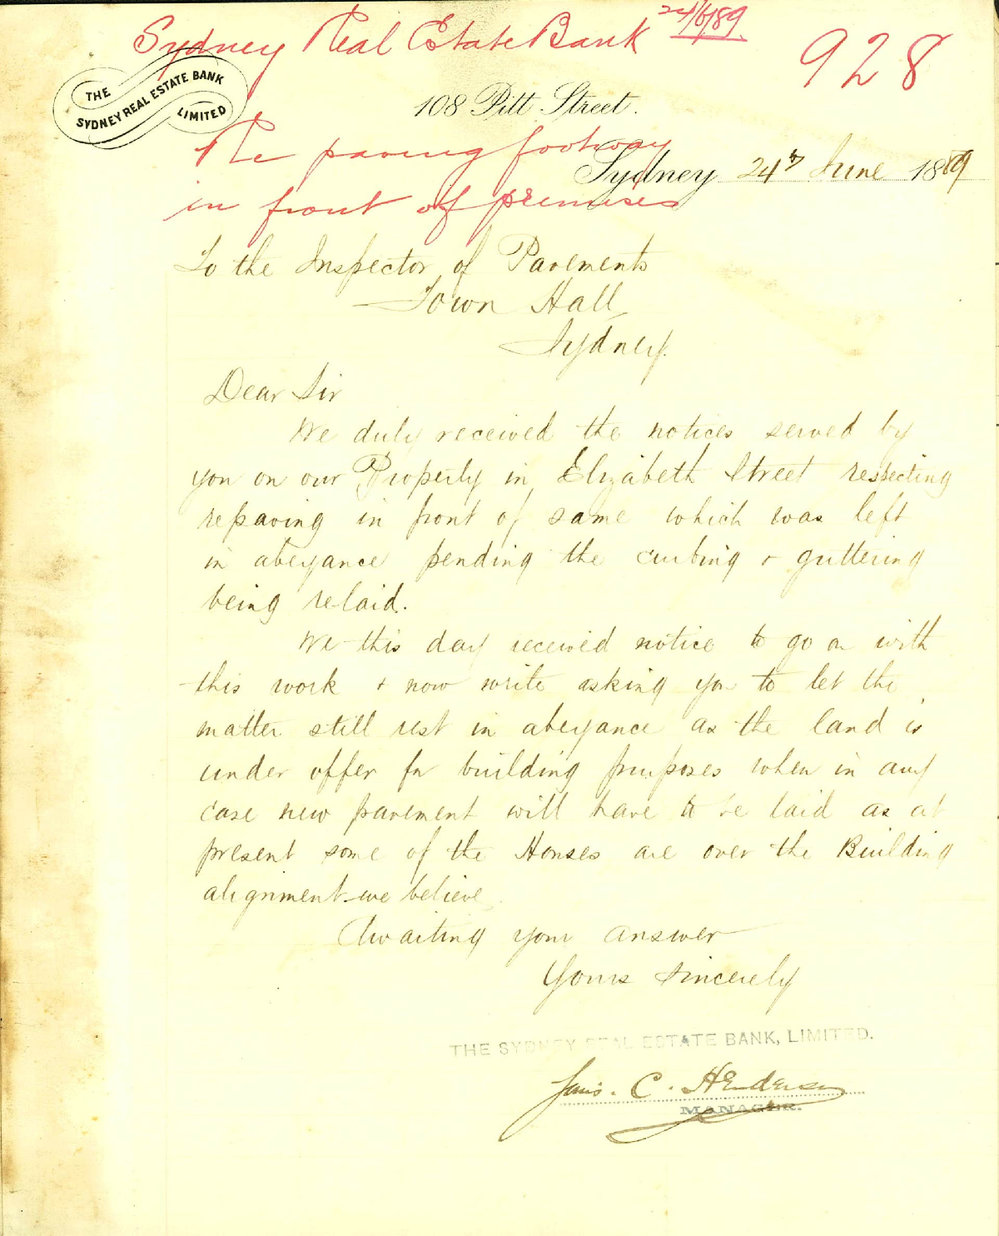 Sydney Real Estate Bank 24/6/89
928
THE
SYDNEY REAL ESTATE BANK
LIMITED
108 Pitt Street.
Re paving footway
Sydney 24th June 1889
in front of premises
To the Inspector of Pavements
Town Hall
Sydney.
Dear Sir
We duly received the notices served by
you on our Property in Elizabeth Street respecting
repaving in front of same which was left
in abeyance pending the curbing & guttering
being relaid.
We this day received notice to go on with
this work & now write asking you to let the
matter still rest in abeyance as the land is
under offer for building purposes when in any
case new pavement will have to be laid as at
present some of the Houses are over the Building
alignment we believe
Awaiting your answer
Yours Sincerely
THE SYDNEY REAL ESTATE BANK, LIMITED.
C. Henderson
MANAGER.